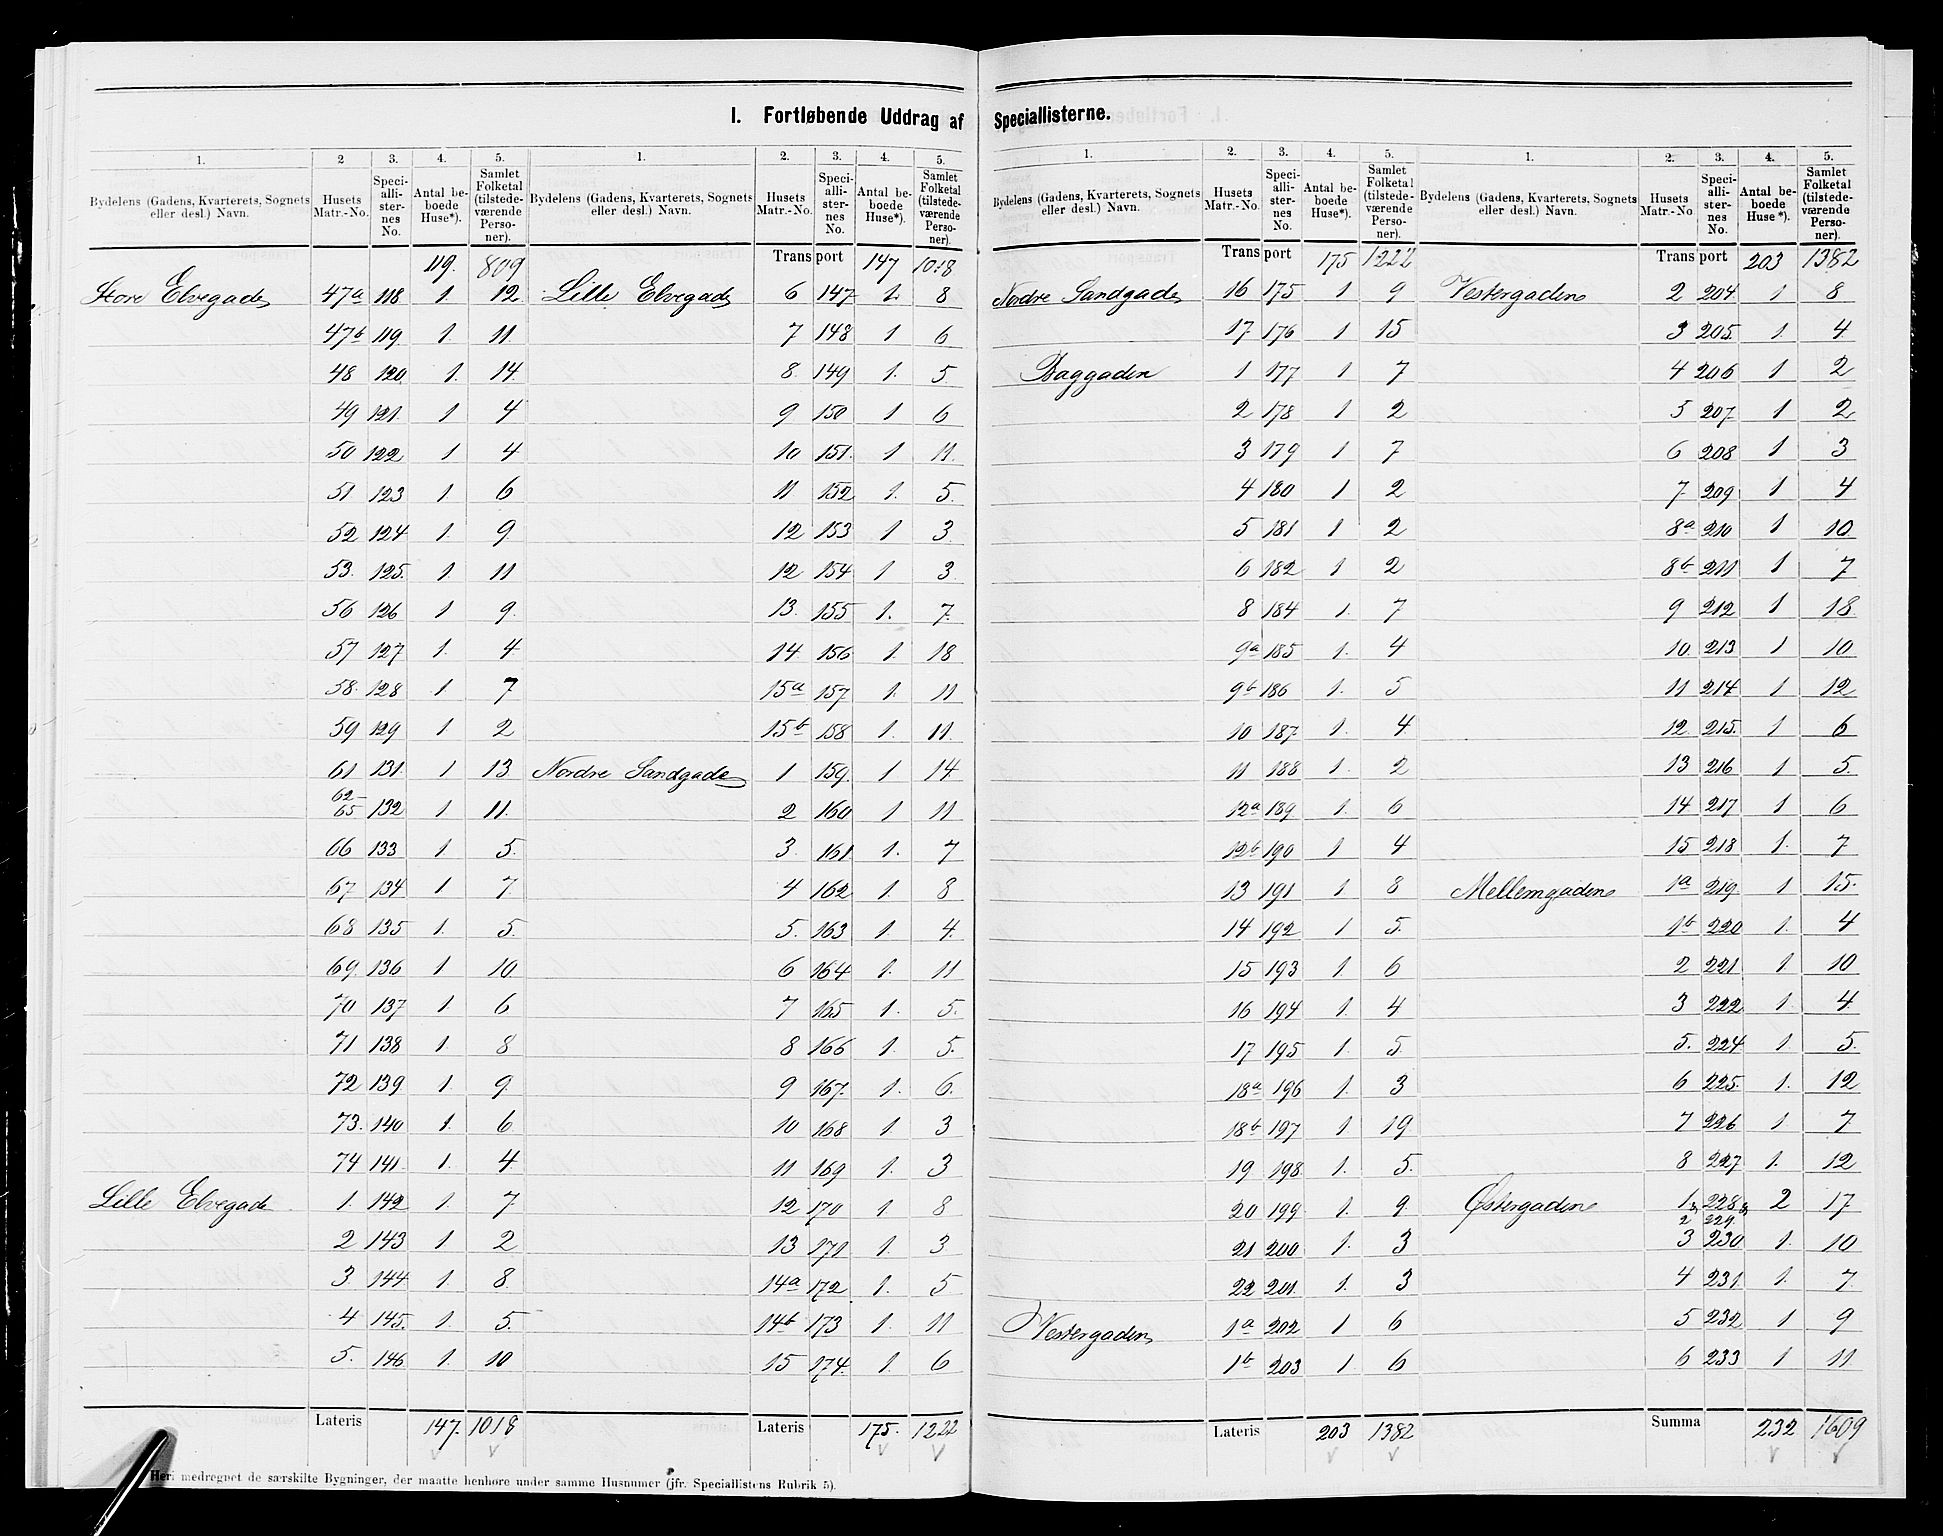 I. Fortløbende Uddrag af Speciallisterne.
1. 2 3. 4. 5. 1. 2. 3. 4. 5.
Bydelens (Gadens, Kvarterets, Sognets eller desl.) Navn. Husets Matr.-No. Speciallisternes No. Antal beboede Huse*). Samlet Folketal (tilstedeværende Personer). Bydelens (Gadens, Kvarterets, Sognets eller desl.) Navn. Husets Matr.-No. Speciallisternes No. Antal beboede Huse*). Samlet Folketal (tilstedeværende Personer).
119. 809 Transport 147 1018
Store Elvegade 47a 118 1. 12 Lille Elvegade 6 147 1. 8
47b 119. 1. 11. 7 148 1 6
48 120. 1. 14. 8. 149 1. 5
49 121. 1 4 9 150 1 6
50 122 1 4 10 151. 1 11.
51 123 1 6 11 152 1. 5.
52 124 1. 9. 12 153 1 3.
53. 125. 1. 11 12 154 1 3.
56 126 1 9. 13. 155 1. 7.
57 127 1. 4 14. 156 1. 18
58. 128 1 7 15a 157 1. 11
59 129 1 2 15b 158 1. 11.
61 131. 1 13 Nordre Sandgade 1 159. 1 14.
62-65 132 1 11. 2 160 1 11
66 133 1 5. 3. 161 1. 7
67 134 1 7 4 162 1. 8
68 135 1. 5. 5. 163 1. 4.
69. 136 1 10. 6 164 1. 11
70 137 1. 6 7 165 1. 5.
71 138 1 8 8 166 1. 5.
72 139 1. 9. 9 167. 1. 6.
73. 140 1. 6 10 168 1 3
74 141. 1. 4 11 169 1. 3
Lille Elvegade 1. 142 1. 7 12 170 1. 8
2 143 1 2 13 171 1. 3
3. 144 1. 8. 14a 172 1. 5
4 145. 1. 5. 14b 173 1. 11
5. 146 1. 10 15 174. 1. 6
Lateris 147. 1018 Lateris 175. 1222
Heri medregnet de særskilte Bygninger, der maatte henhøre under samme Husnumer (jfr. Speciallistens Rubrik 5).
1. 2. 3. 4. 5. 1. 2. 3. 4. 5.
Bydelens (Gadens, Kvarterets, Sognets eller desl.) Navn. Husets Matr.-No. Speciallisternes No. Antal beboede Huse*). Samlet Folketal (tilstedeværende Personer). Bydelens (Gadens, Kvarterets, Sognets eller desl.) Navn. Husets Matr.-No. Speciallisternes No. Antal beboede Huse*). Samlet Folketal (tilstedeværende Personer).
Transport 175 1222 Transport 203 1382
Nordre Sandgade 16 175 1 9 Vestergaden 2 204. 1 8
17. 176 1 15 3 205. 1. 4.
Baggaden 1 177 1 7 4 206 1 2
2 178 1 2 5 207. 1 2
3 179 1 7 6 208 1 3
4 180 1 2 7. 209 1 4
5 181 1 2 8a 210 1 10.
6 182 1 2 8b 211 1 7
8 184 1. 7 9 212 1 18.
9a 185 1. 4 10. 213 1 10
9b 186 1. 5 11 214 1 12
10 187. 1. 4. 12. 215. 1 6
11 188 1. 2 13 216 1 5.
12a 189 1. 6 14 217 1 6
12b 190 1 4 15 218 1. 7
13 191 1. 8 Mellemgaden 1a 219. 1 15.
14 192 1 5. 1b 220 1. 4
15 193 1. 6 2 221. 1. 10
16 194 1. 4 3 222 1. 4.
17 195 1. 5. 5. 224 1. 5.
18a 196 1. 3 6 225. 1. 12
18b 197 1 19 7 226 1 7
19 198 1. 5. 8 227 1. 12
20 199 1. 9. Østergaden 1 & 2 228 & 229. 2 17
21 200 1. 3 3 230 1. 10
22 201. 1. 3 4 231. 1. 7.
Vestergaden 1a 202 1 6 5 232 1 9
1b 203 1. 6 6 233 1 11
Lateris 203 1382 Summa 232 1609